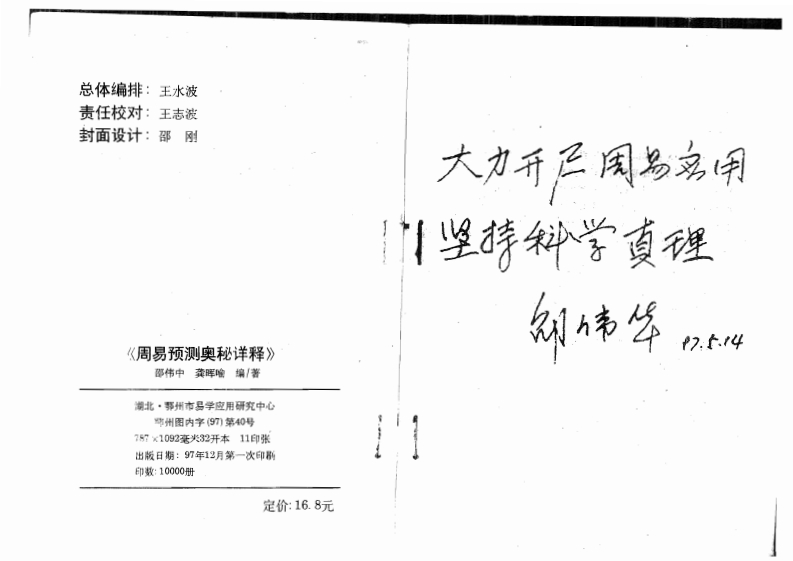 总体编排：王水波
责任校对：王志波
封面设计：邵 刚
《周易预测奥秘详释》
邵伟中 龚晖喻 编/著
湖北·鄂州市易学应用研究中心
鄂州图内字(97)第40号
787×1092毫米32开本 11印张
出版日期：97年12月第一次印刷
印数:10000册
定价:16.8元
大力开尸周易实用
坚持科学真理
邵伟华 97.5.14